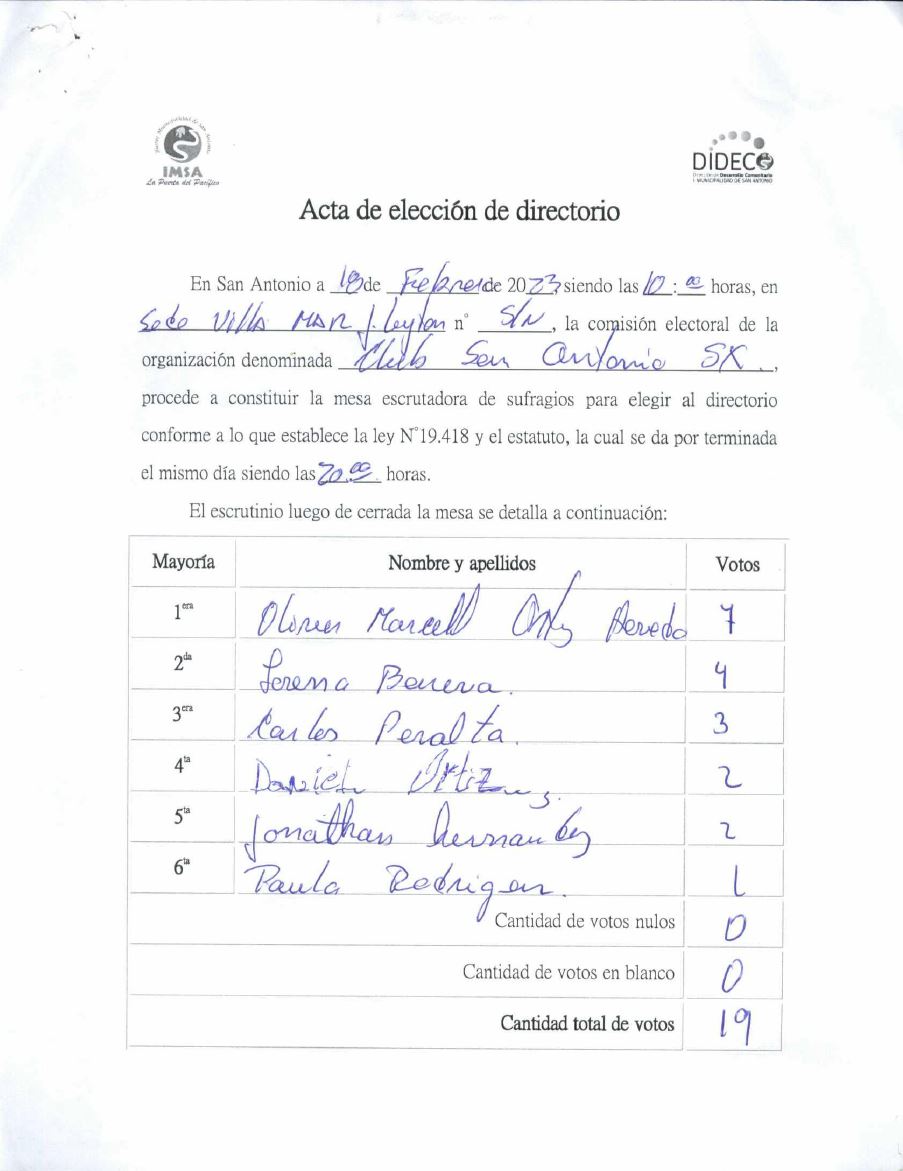 IMSA
La Puerta del Pacífico
DIDECO
Dirección de Desarrollo Comunitario
I. MUNICIPALIDAD DE SAN ANTONIO
Acta de elección de directorio
En San Antonio a 18 de Febrero de 2023 siendo las 10:00 horas, en
Sede Villa MAR J. Leyton n° S/N, la comisión electoral de la
organización denominada Club San Antonio SK.,
procede a constituir la mesa escrutadora de sufragios para elegir al directorio
conforme a lo que establece la ley N°19.418 y el estatuto, la cual se da por terminada
el mismo día siendo las 20:00. horas.
El escrutinio luego de cerrada la mesa se detalla a continuación:
Mayoría Nombre y apellidos Votos
1era Marcell Ortiz 7
2da Lorena 4
3era Carlos Peralta. 3
4ta Daniel Ortiz 2
5ta Jonathan Hernandez 2
6ta Paula 1
Cantidad de votos nulos 0
Cantidad de votos en blanco 0
Cantidad total de votos 19